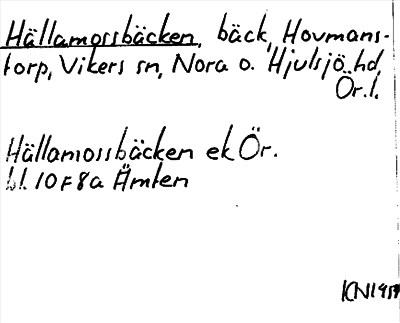 Hällamossbäcken, bäck, Hovmans-
torp, Vikers sn, Nora o. Hjulsjö hd,
Ör. l.
Hällamossbäcken ek Ör.
bl. 10F8a Ämten